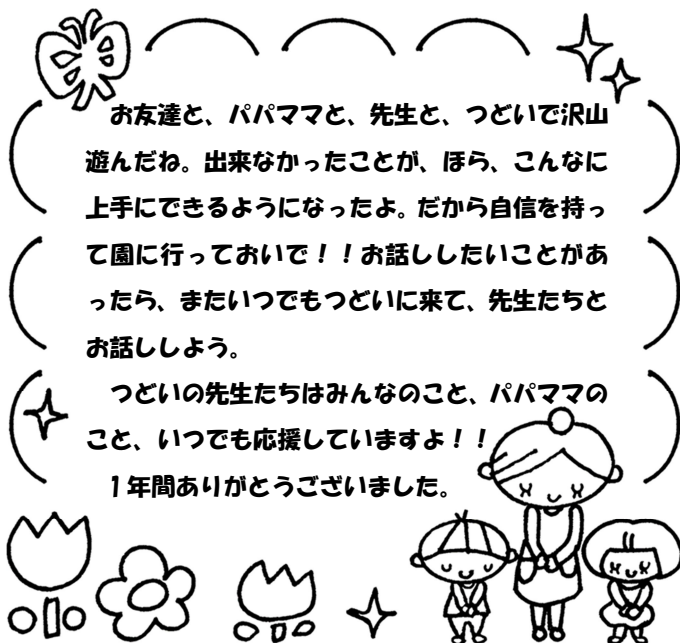 お友達と、パパママと、先生と、つどいで沢山
遊んだね。出来なかったことが、ほら、こんなに
上手にできるようになったよ。だから自信を持っ
て園に行っておいで！！お話ししたいことがあ
ったら、またいつでもつどいに来て、先生たちと
お話ししよう。
つどいの先生たちはみんなのこと、パパママの
こと、いつでも応援していますよ！！
１年間ありがとうございました。